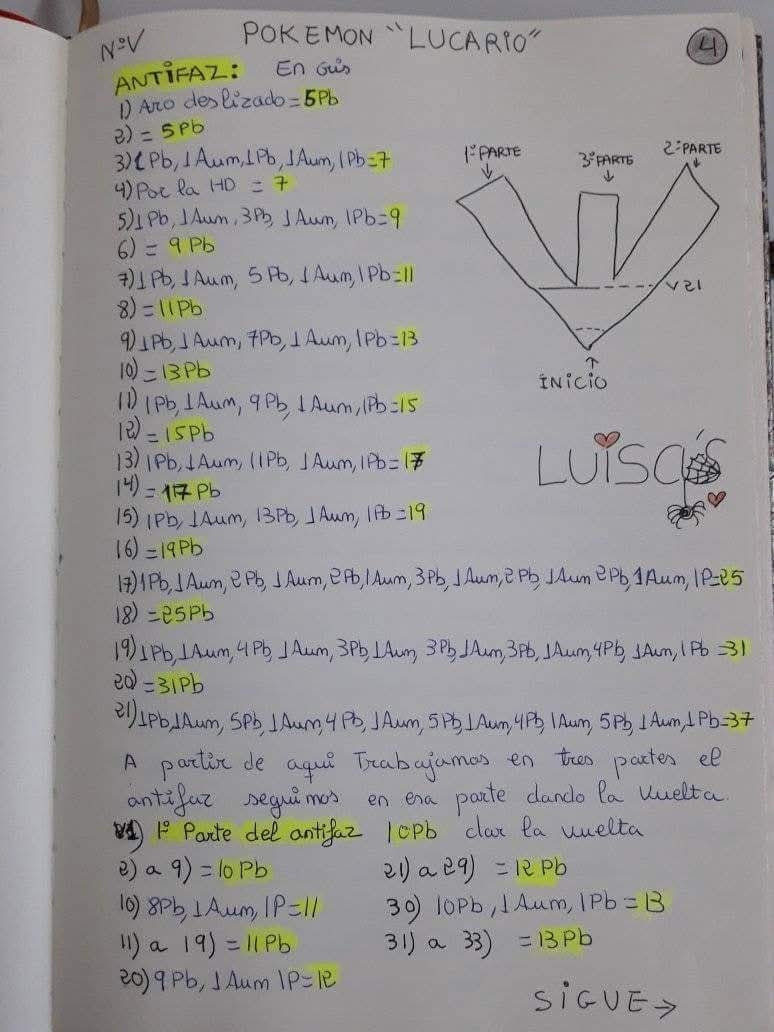 NºV
POKEMON "LUCARIO"
4
ANTIFAZ: En Gris
1) Aro deslizado = 5Pb
2) = 5Pb
3) 1Pb, 1Aum, 1Pb, 1Aum, 1Pb = 7
4) Por la HD = 7
5) 1Pb, 1Aum, 3Pb, 1Aum, 1Pb = 9
6) = 9Pb
7) 1Pb, 1Aum, 5Pb, 1Aum, 1Pb = 11
8) = 11Pb
9) 1Pb, 1Aum, 7Pb, 1Aum, 1Pb = 13
10) = 13Pb
11) 1Pb, 1Aum, 9Pb, 1Aum, 1Pb = 15
12) = 15Pb
13) 1Pb, 1Aum, 11Pb, 1Aum, 1Pb = 17
14) = 17Pb
15) 1Pb, 1Aum, 13Pb, 1Aum, 1Pb = 19
16) = 19Pb
17) 1Pb, 1Aum, 2Pb, 1Aum, 2Pb, 1Aum, 3Pb, 1Aum, 2Pb, 1Aum 2Pb, 1Aum, 1P = 25
18) = 25Pb
19) 1Pb, 1Aum, 4Pb, 1Aum, 3Pb, 1Aum, 3Pb, 1Aum, 3Pb, 1Aum, 4Pb, 1Aum, 1Pb = 31
20) = 31Pb
21) 1Pb, 1Aum, 5Pb, 1Aum, 4Pb, 1Aum, 5Pb, 1Aum, 4Pb, 1Aum, 5Pb, 1Aum, 1Pb = 37
1ª PARTE
3ª PARTE
2ª PARTE
V21
INICIO
LUISA'S
A partir de aqui Trabajamos en tres partes el
antifaz seguimos en esa parte dando la vuelta.
1) 1ª Parte del antifaz 10Pb dar la vuelta
2) a 9) = 10Pb
10) 8Pb, 1Aum, 1P = 11
11) a 19) = 11Pb
20) 9Pb, 1Aum 1P = 12
21) a 29) = 12Pb
30) 10Pb, 1Aum, 1Pb = 13
31) a 33) = 13Pb
SIGUE →